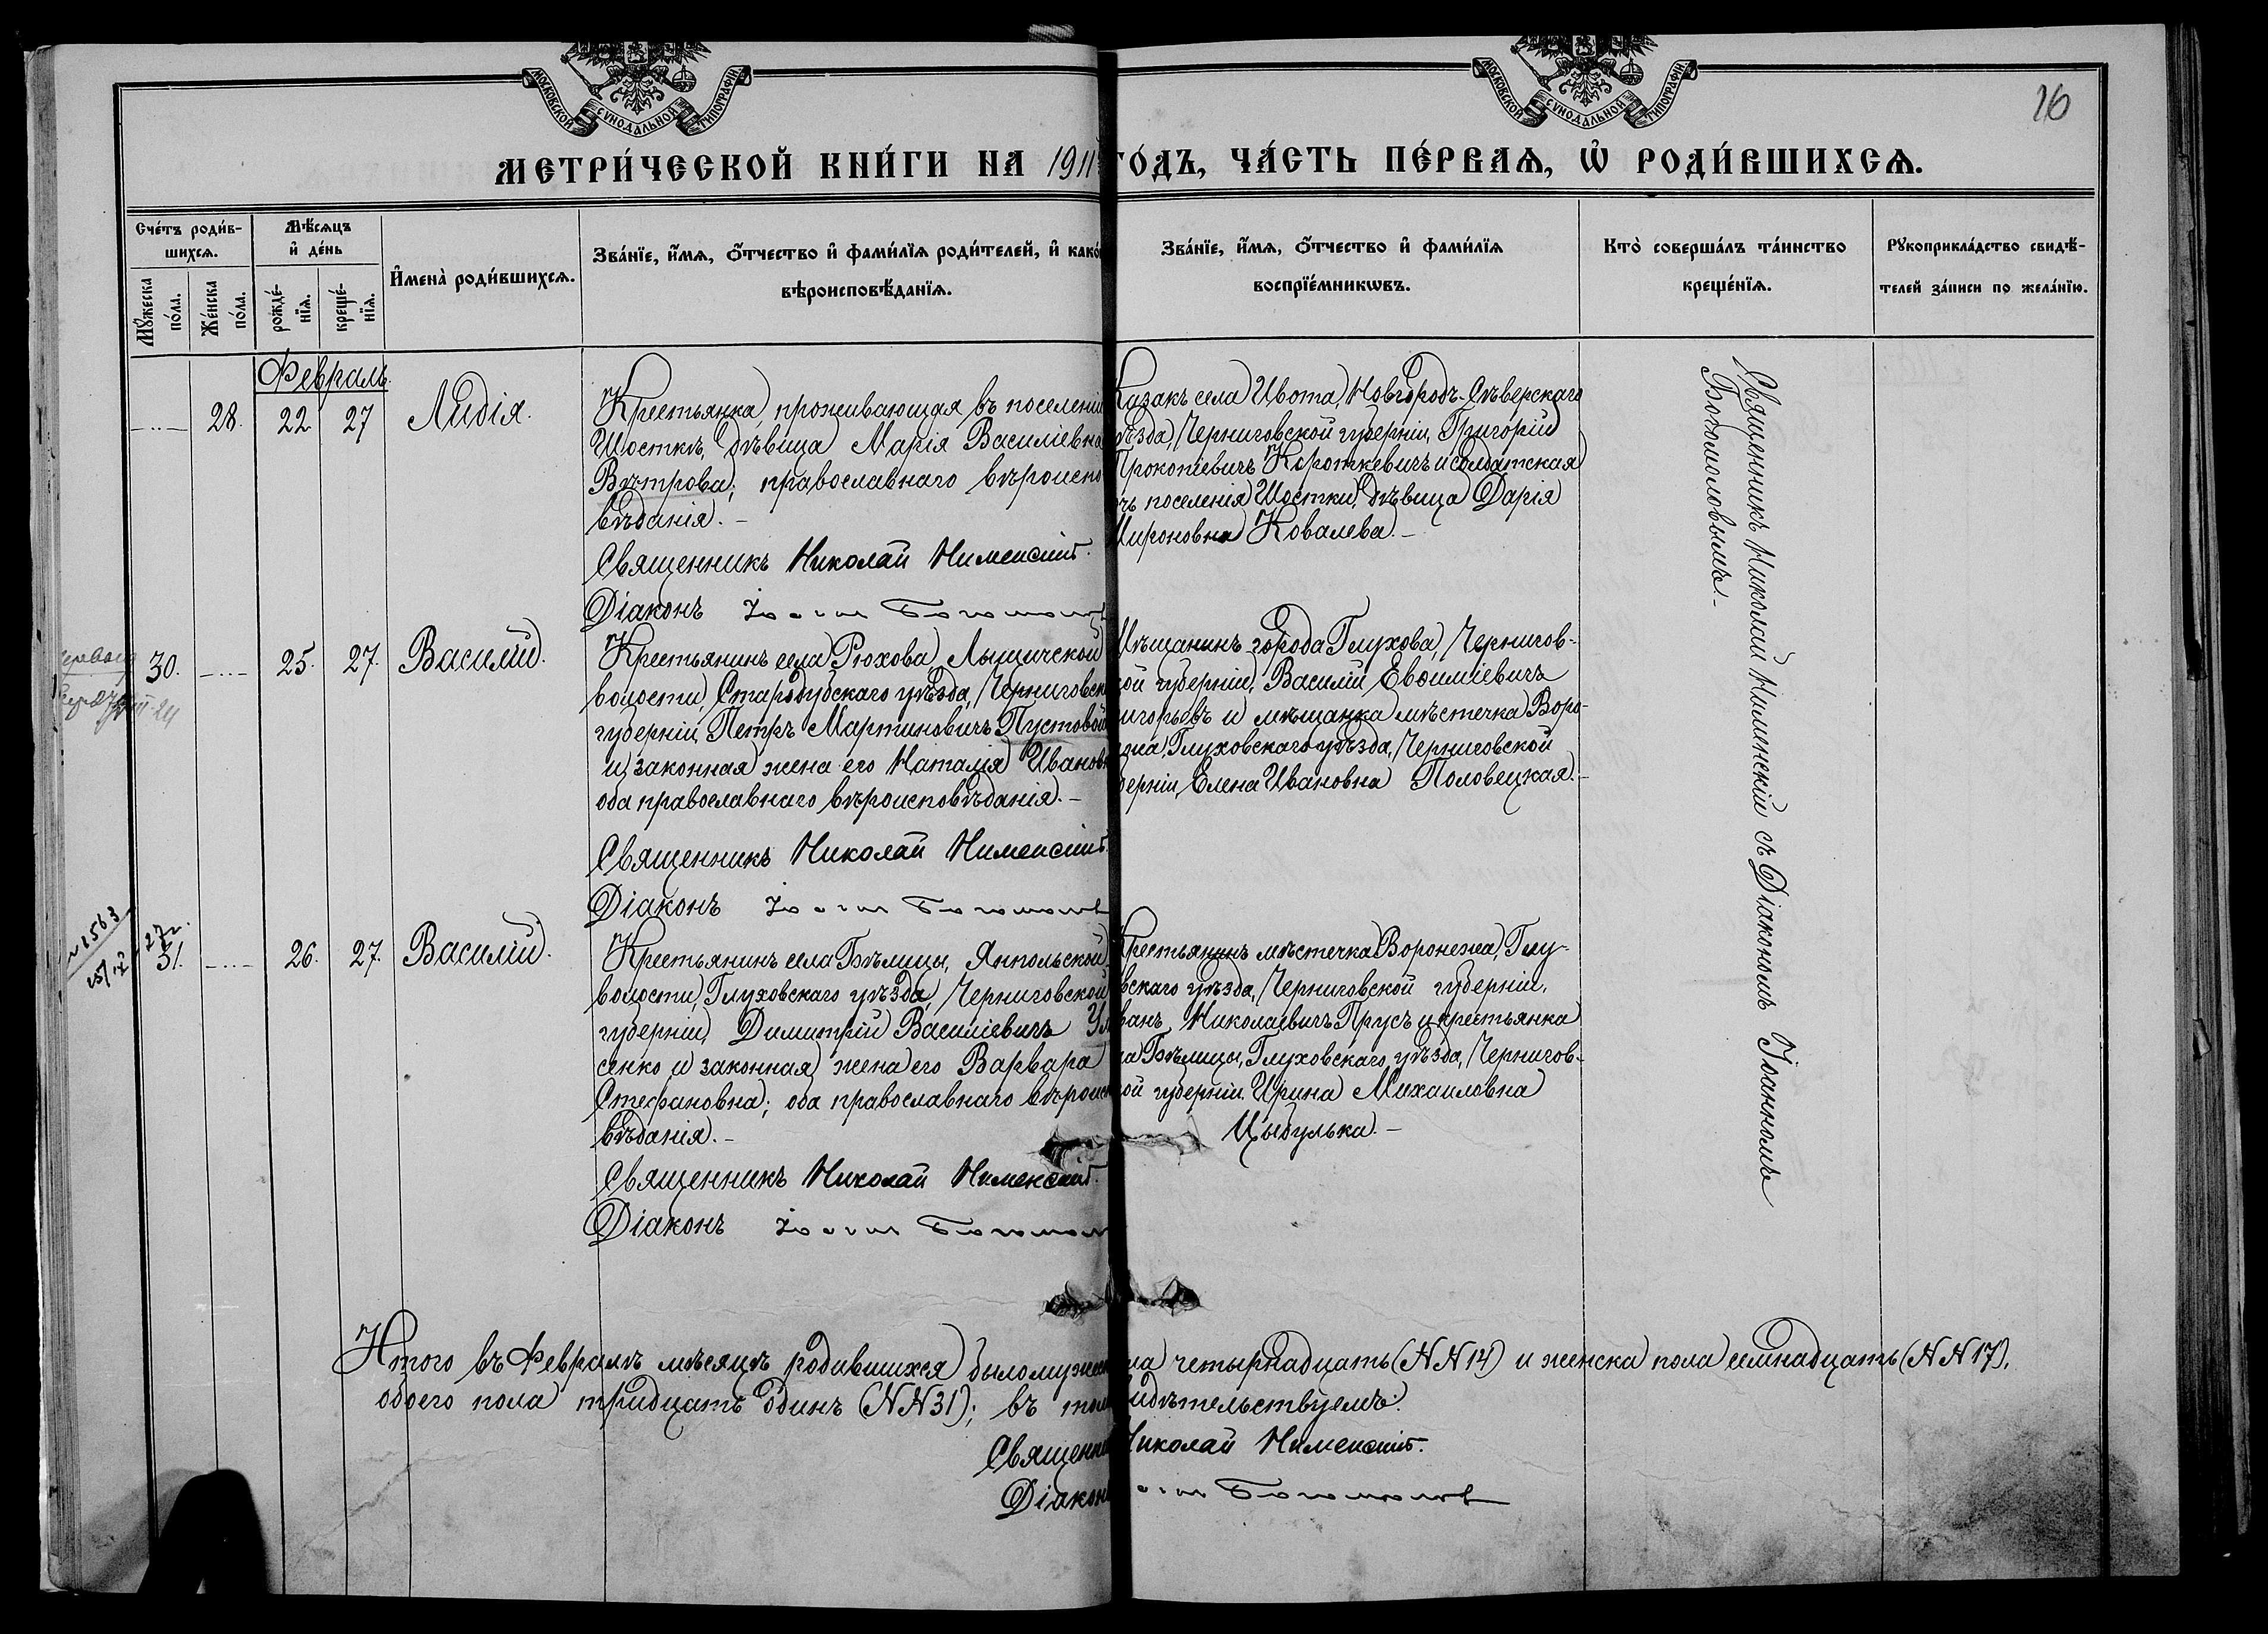 МОСКОВСКОЙ СУНОДАЛЬНОЙ ТИПОГРАФІИ
МОСКОВСКОЙ СУНОДАЛЬНОЙ ТИПОГРАФІИ
16
МЕТРИ́ЧЕСКОЙ КНИ́ГИ НА 1911 ГО́ДЪ, ЧА́СТЬ ПЕ́РВАѦ, Ѡ҆ РОДИ́ВШИХСѦ.
Сче́тъ роди́в-
шихсѧ.
Мꙋ́жеска
по́ла.
Же́нска
по́ла.
Мѣ́сѧцъ
и҆ де́нь
рожде́-
нїѧ.
креще́-
нїѧ.
И҆мена̀ роди́вшихсѧ.
Зва́нїе, и҆́мѧ, ѻ҆́тчество и҆ фами́лїѧ роди́телей, и҆ како́
вѣроисповѣ́данїѧ.
Зва́нїе, и҆́мѧ, ѻ҆́тчество и҆ фами́лїѧ
воспрїе́мникѡвъ.
Кто̀ соверша́лъ та́инство
креще́нїѧ.
Рꙋкоприкла́дство свидѣ́-
телей за́писи по жела́нїю.
Февраль.
28. 22 27 Лидія.
Крестьянка, проживающая въ поселеніи
Шосткѣ, дѣвица Марія Василіевна
Вѣтрова; православнаго вѣроиспо
вѣданія.-
Священникъ Николай Нименскій.
Діаконъ Іоаннъ Богомолов
Казакъ села Ивота, Новгородъ-Сѣверскаго
уѣзда, Черниговской губерніи, Григорій
Прокопіевичъ Короткевичъ и солдатская
чь поселенія Шостки, дѣвица Дарія
Мироновна Ковалева.-
Священникъ Николай Нименскій съ Діакономъ Іоанномъ
Богомоловымъ.-
30. 25. 27. Василій.
Крестьянинъ села Рюхова, Лыщичской
волости, Стародубскаго уѣзда, Черниговск
губерніи, Петръ Мартиновичъ Пустовой
и законная жена его Наталія Ивановн
оба православнаго вѣроисповѣданія.-
Священникъ Николай Нименскій.
Діаконъ Іоаннъ Богомолов
Мѣщанинъ города Глухова, Чернигов-
кой губерніи, Василій Евѳиміевичъ
игорьевъ и мѣщанка мѣстечка Воро-
ежа, Глуховскаго уѣзда, Черниговской
берніи, Елена Ивановна Половецкая.-
№ 1563
31. 26. 27. Василій.
Крестьянинъ села Бѣлицы, Янпольской
волости, Глуховскаго уѣзда, Черниговской
губерніи, Димитрій Василіевичъ
сенко и законная жена его Варвара
Стефановна; оба православнаго вѣроисп
вѣданія.-
Священникъ Николай Нименскій.
Діаконъ Іоаннъ Богомол
Крестьянинъ мѣстечка Воронежа, Глу-
вскаго уѣзда, Черниговской губерніи,
ванъ Николаевичъ Прусъ и крестьянка
ла Бѣлицы, Глуховскаго уѣзда, Чернигов-
кой губерніи Ирина Михаиловна
Цыбулька.-
Итого въ Февралѣ мѣсяцѣ родившихся было мужеск ла четырнадцать (№№ 14) и женска пола семнадцать (№№ 17),
обоего пола тридцать одинъ (№№ 31); въ том идѣтельствуемъ:
Священни Николай Нименскій.
Діакон оаннъ Богомолов